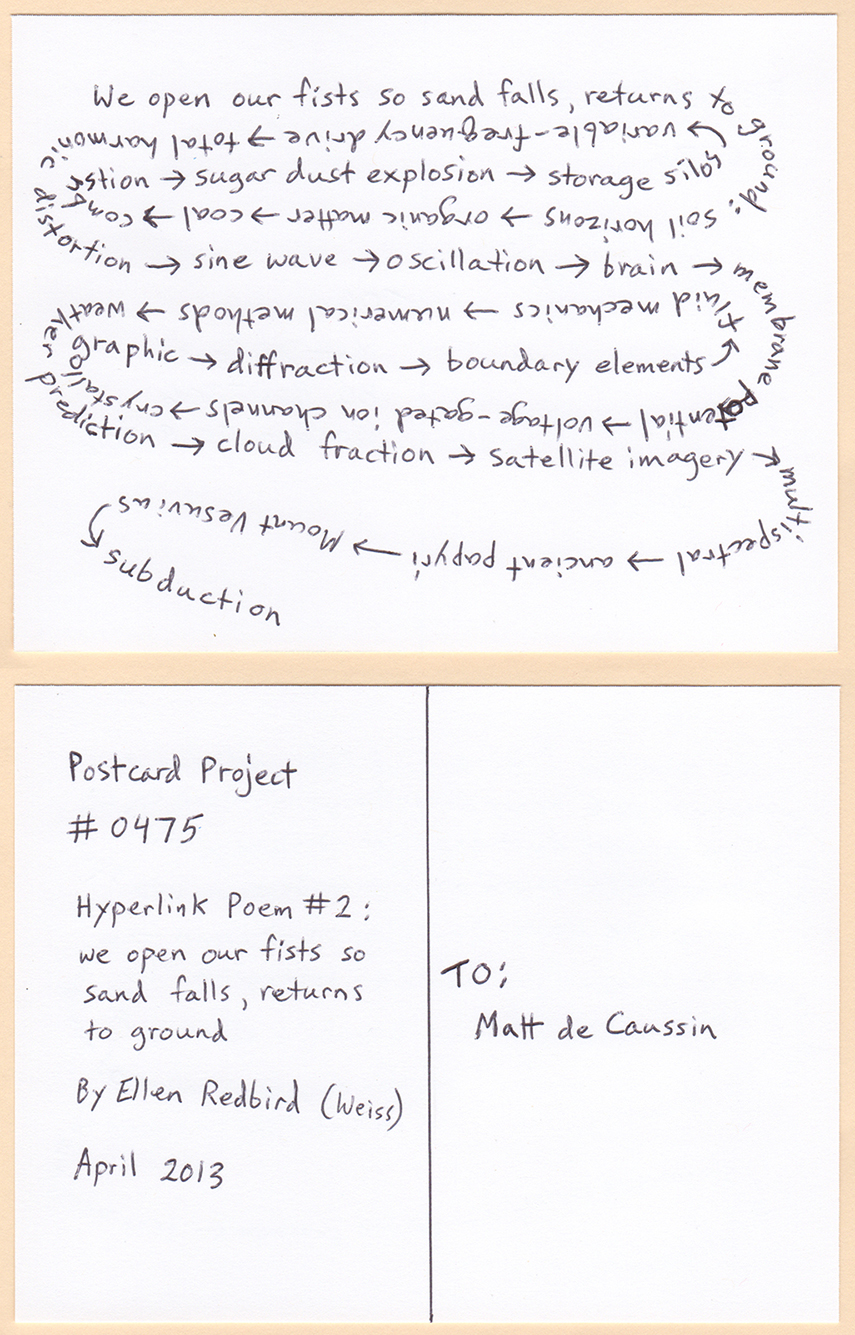 We open our fists so sand falls, returns to ground:
soil horizons → organic matter → coal → combustion
→ sugar dust explosion → storage silos
→ variable-frequency drive → total harmonic distortion
→ sine wave → oscillation → brain → membrane
potential → voltage-gated ion channels → crystallographic
→ diffraction → boundary elements
→ fluid mechanics → numerical methods → weather prediction
→ cloud fraction → satellite imagery → multispectral
→ ancient papyri → Mount Vesuvius
→ subduction
Postcard Project
# 0475
Hyperlink Poem #2:
we open our fists so
sand falls, returns
to ground
By Ellen Redbird (Weiss)
April 2013
TO:
Matt de Caussin